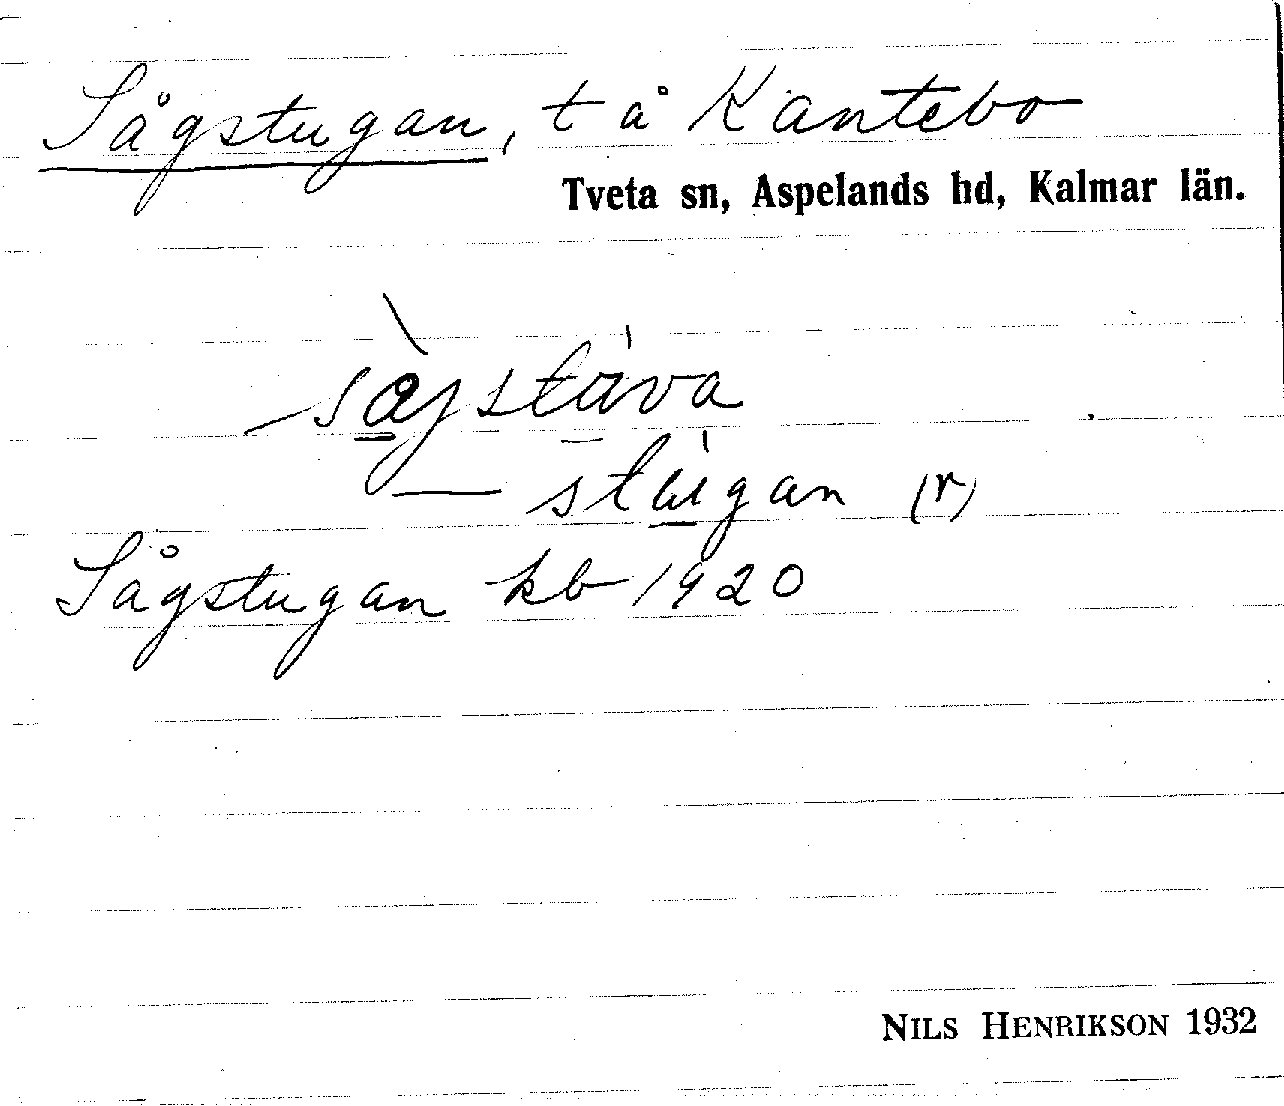 Sågstugan, t å Kantebo
Tveta sn, Aspelands hd, Kalmar län.
— stugan (r)
Sågstugan kb 1920
NILS HENRIKSON 1932